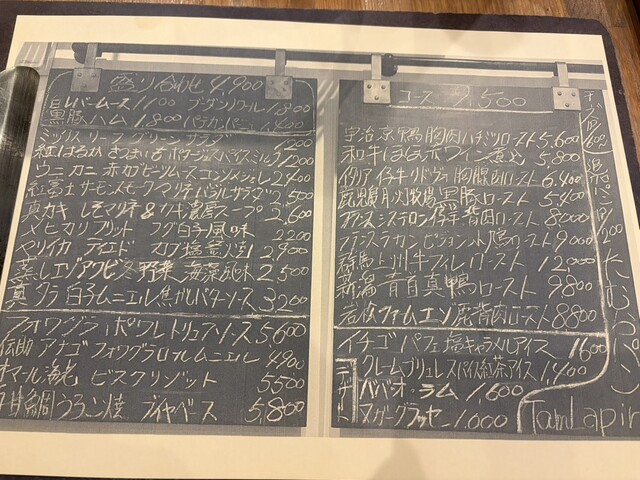 盛り合わせ 4,900
白レバームース 1,100 ブーダンノワール 1,800
黒豚ハム 1,800 パテカンパーニュ 1,400
ミックスリーフ グリーンサラダ 1,200
紅はるか さつまいも ポタージュ スパイスミルク 1,200
ウニ カニ 赤カブ ビーツムース コンソメジュレ 2,400
紅富士サーモンスモーク マリネ バジルサラダ 2,500
真カキ しそマリネ & カキ濃厚スープ 2,600
メヒカリ フリット フグ白子風味 2200
ヤリイカ 塩釜焼 2,900
蒸しエゾアワビ 冬野菜 海藻風味 2,500
真タラ 白子ムニエル 焦がしバターソース 3200
フォワグラ ポワレ トリュフソース 5,600
伝助アナゴ フォワグラ ムニエル 4900
オマール海老 ビスクリゾット 5500
甘鯛うろこ焼 ブイヤベース 5,800
コース 7,500
宇治 京鴨胸肉ハチミツロースト 5,600
和牛ほほ赤ワイン煮込 5,800
イタリア 仔牛 胸腺肉ロースト 6,400
鹿児島 黒豚ロースト 5400
フランス シストロン 仔羊背肉ロースト 8000
フランス ラカン ピジョン ロースト 9000
群馬 上州牛フィレ ロースト 12,000
新潟 青首真鴨 ロースト 9800
若桜ファームエゾ鹿背肉ロースト 8800
イチゴ パフェ 塩キャラメルアイス 1600
クレームブリュレ スパイス紅茶アイス 1,400
ババオ・ラム 1,600
ヌガーグラッセ 1,000
パン
TamLapin